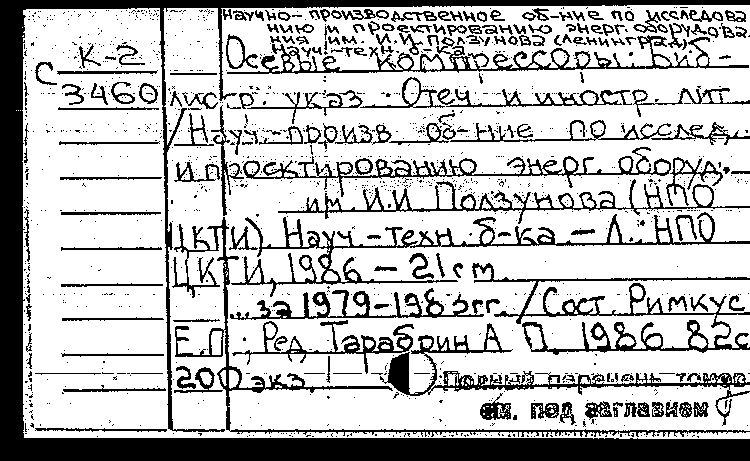 Научно-производственное об-ние по исследова
нию и проектированию энерг. оборудова
ния им. И.И. Ползунова (Ленинград).
Науч.-техн. б-ка.
К-2 Осевые компрессоры: Биб-
С 3460 лиогр. указ. Отеч. и иностр. лит.
/Науч.-произв. об-ние по исслед.
и проектированию энерг. оборуд.
им. И.И. Ползунова (НПО
ЦКТИ). Науч.-техн. б-ка. – Л.: НПО
ЦКТИ, 1986. – 21см.
...за 1979-1983гг. / Сост. Римкус
Е.П.; Ред. Тарабрин А.П. 1986. 82с
200 экз.
Полный перечень томов
см. под заглавием